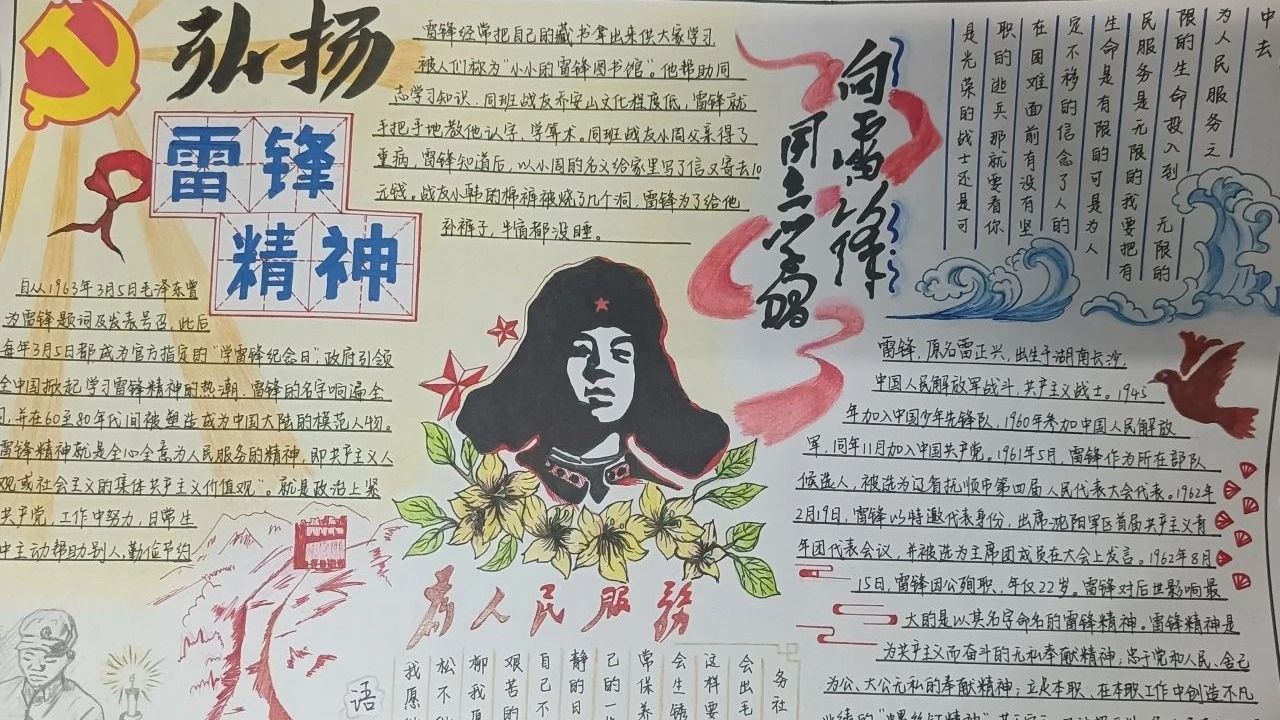 弘扬
雷锋
精神
雷锋经常把自己的藏书拿出来供大家学习
被人们称为“小小的雷锋图书馆”。他帮助同
志学习知识，同班战友乔安山文化程度低，雷锋就
手把手地教他认字，学算术。同班战友小周父亲得了
重病，雷锋知道后，以小周的名义给家里写了信又寄去10
元钱。战友小韩的棉裤被烧了几个洞，雷锋为了给他
裤子，半宿都没睡。
向雷锋
同志学习
中去
为人民服务之
限的生命投入到 无限的
民服务是无限的我要把有
生命是有限的可是为人
定不移的信念了人的
在困难面前有没有坚
职的逃兵那就要看你
是光荣的战士还是可
自从1963年3月5日毛泽东曾
为雷锋题词及发表号召，此后
每年3月5日都成为官方指定的“学雷锋纪念日”，政府引领
全中国掀起学习雷锋精神的热潮，雷锋的名字响遍全
并在60至80年代间被塑造成为中国大陆的模范人物。
雷锋精神就是全心全意为人民服务的精神，即共产主义人
观或社会主义的集体共产主义价值观”。就是政治上紧
共产党，工作中努力，日常生
中主动帮助别人，勤俭节约
雷锋，原名雷正兴，出生于湖南长沙，
中国人民解放军战斗，共产主义战士。1945
年加入中国少年先锋队，1960年参加中国人民解放
军，同年11月加入中国共产党。1961年5月，雷锋作为所在部队
候选人，被选为辽省抚顺市第四届人民代表大会代表。1962年
2月19日，雷锋以特邀代表身份，出席沈阳军区首届共产主义青
年团代表会议，并被选为主席团成员在大会上发言。1962年8月
15日，雷锋因公殉职，年仅22岁。雷锋对后世影响最
大的是以其名字命名的雷锋精神。雷锋精神是
为共产主义而奋斗的无私奉献精神；忠于党和人民、舍己
为公、大公无私的奉献精神；立足本职、在本职工作中创造不凡
业绩的“螺丝钉精神”
为人民服务
务社
会出毛
这样要
会生锈
常保养
己的一
静的日
自己不
艰苦的
柳我愿
松不
我愿
语